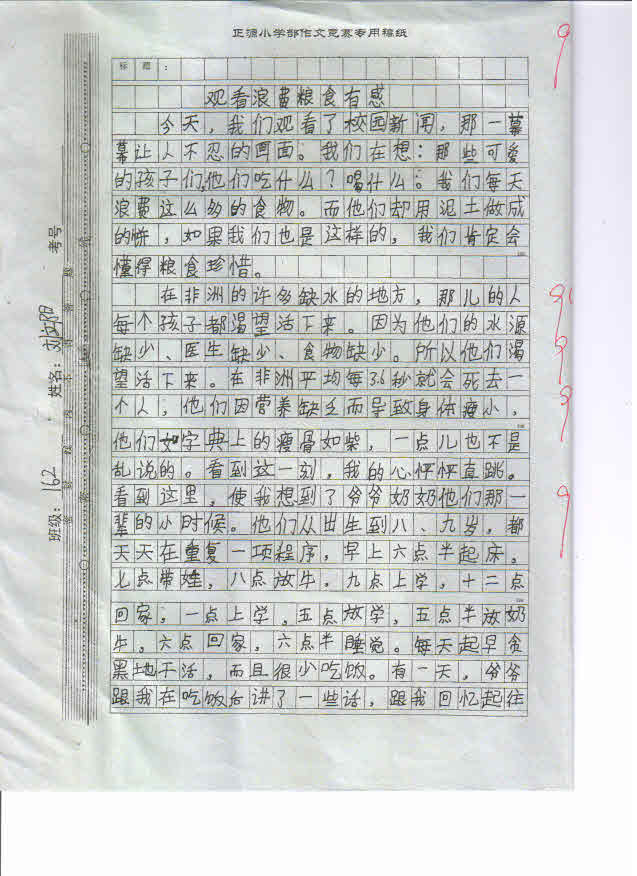 正源小学部作文竞赛专用稿纸
标题:
观看浪费粮食有感
今天,我们观看了校园新闻,那一幕
幕让人不忍的画面。我们在想:那些可爱
的孩子们,他们吃什么?喝什么。我们每天
浪费这么多的食物。而他们却用泥土做成
的饼,如果我们也是这样的,我们肯定会
懂得粮食珍惜。
在非洲的许多缺水的地方,那儿的人
每个孩子都渴望活下来。因为他们的水源
缺少、医生缺少、食物缺少。所以他们渴
望活下来。在非洲平均每3.6秒就会死去一
个人,他们因营养缺乏而导致身体瘦小,
他们如字典上的瘦骨如柴,一点儿也不是
乱说的。看到这一刻,我的心怦怦直跳。
看到这里,使我想到了爷爷奶奶他们那一
辈的小时候。他们从出生到八、九岁,都
天天在重复一项程序,早上六点半起床。
七点带娃,八点放牛。九点上学,十二点
回家,一点上学,五点放学,五点半放奶
牛,六点回家,六点半睡觉。每天起早贪
黑地干活,而且很少吃饭。有一天,爷爷
跟我在吃饭后讲了一些话,跟我回忆起往
考号
姓名:
班级: 162